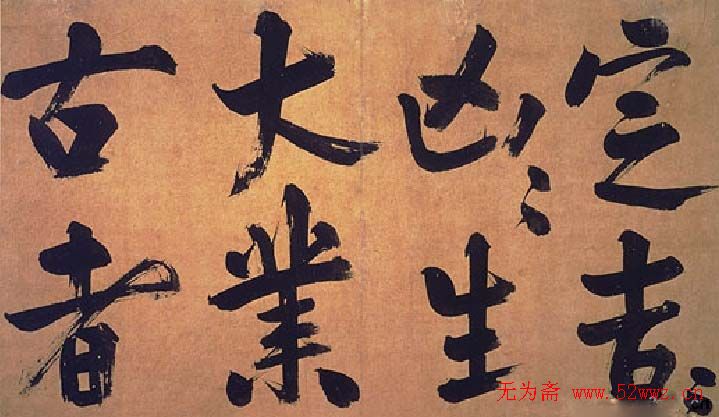 定吉〻
凶〻生
大業
古者
无为斋 www.52wwz.cn